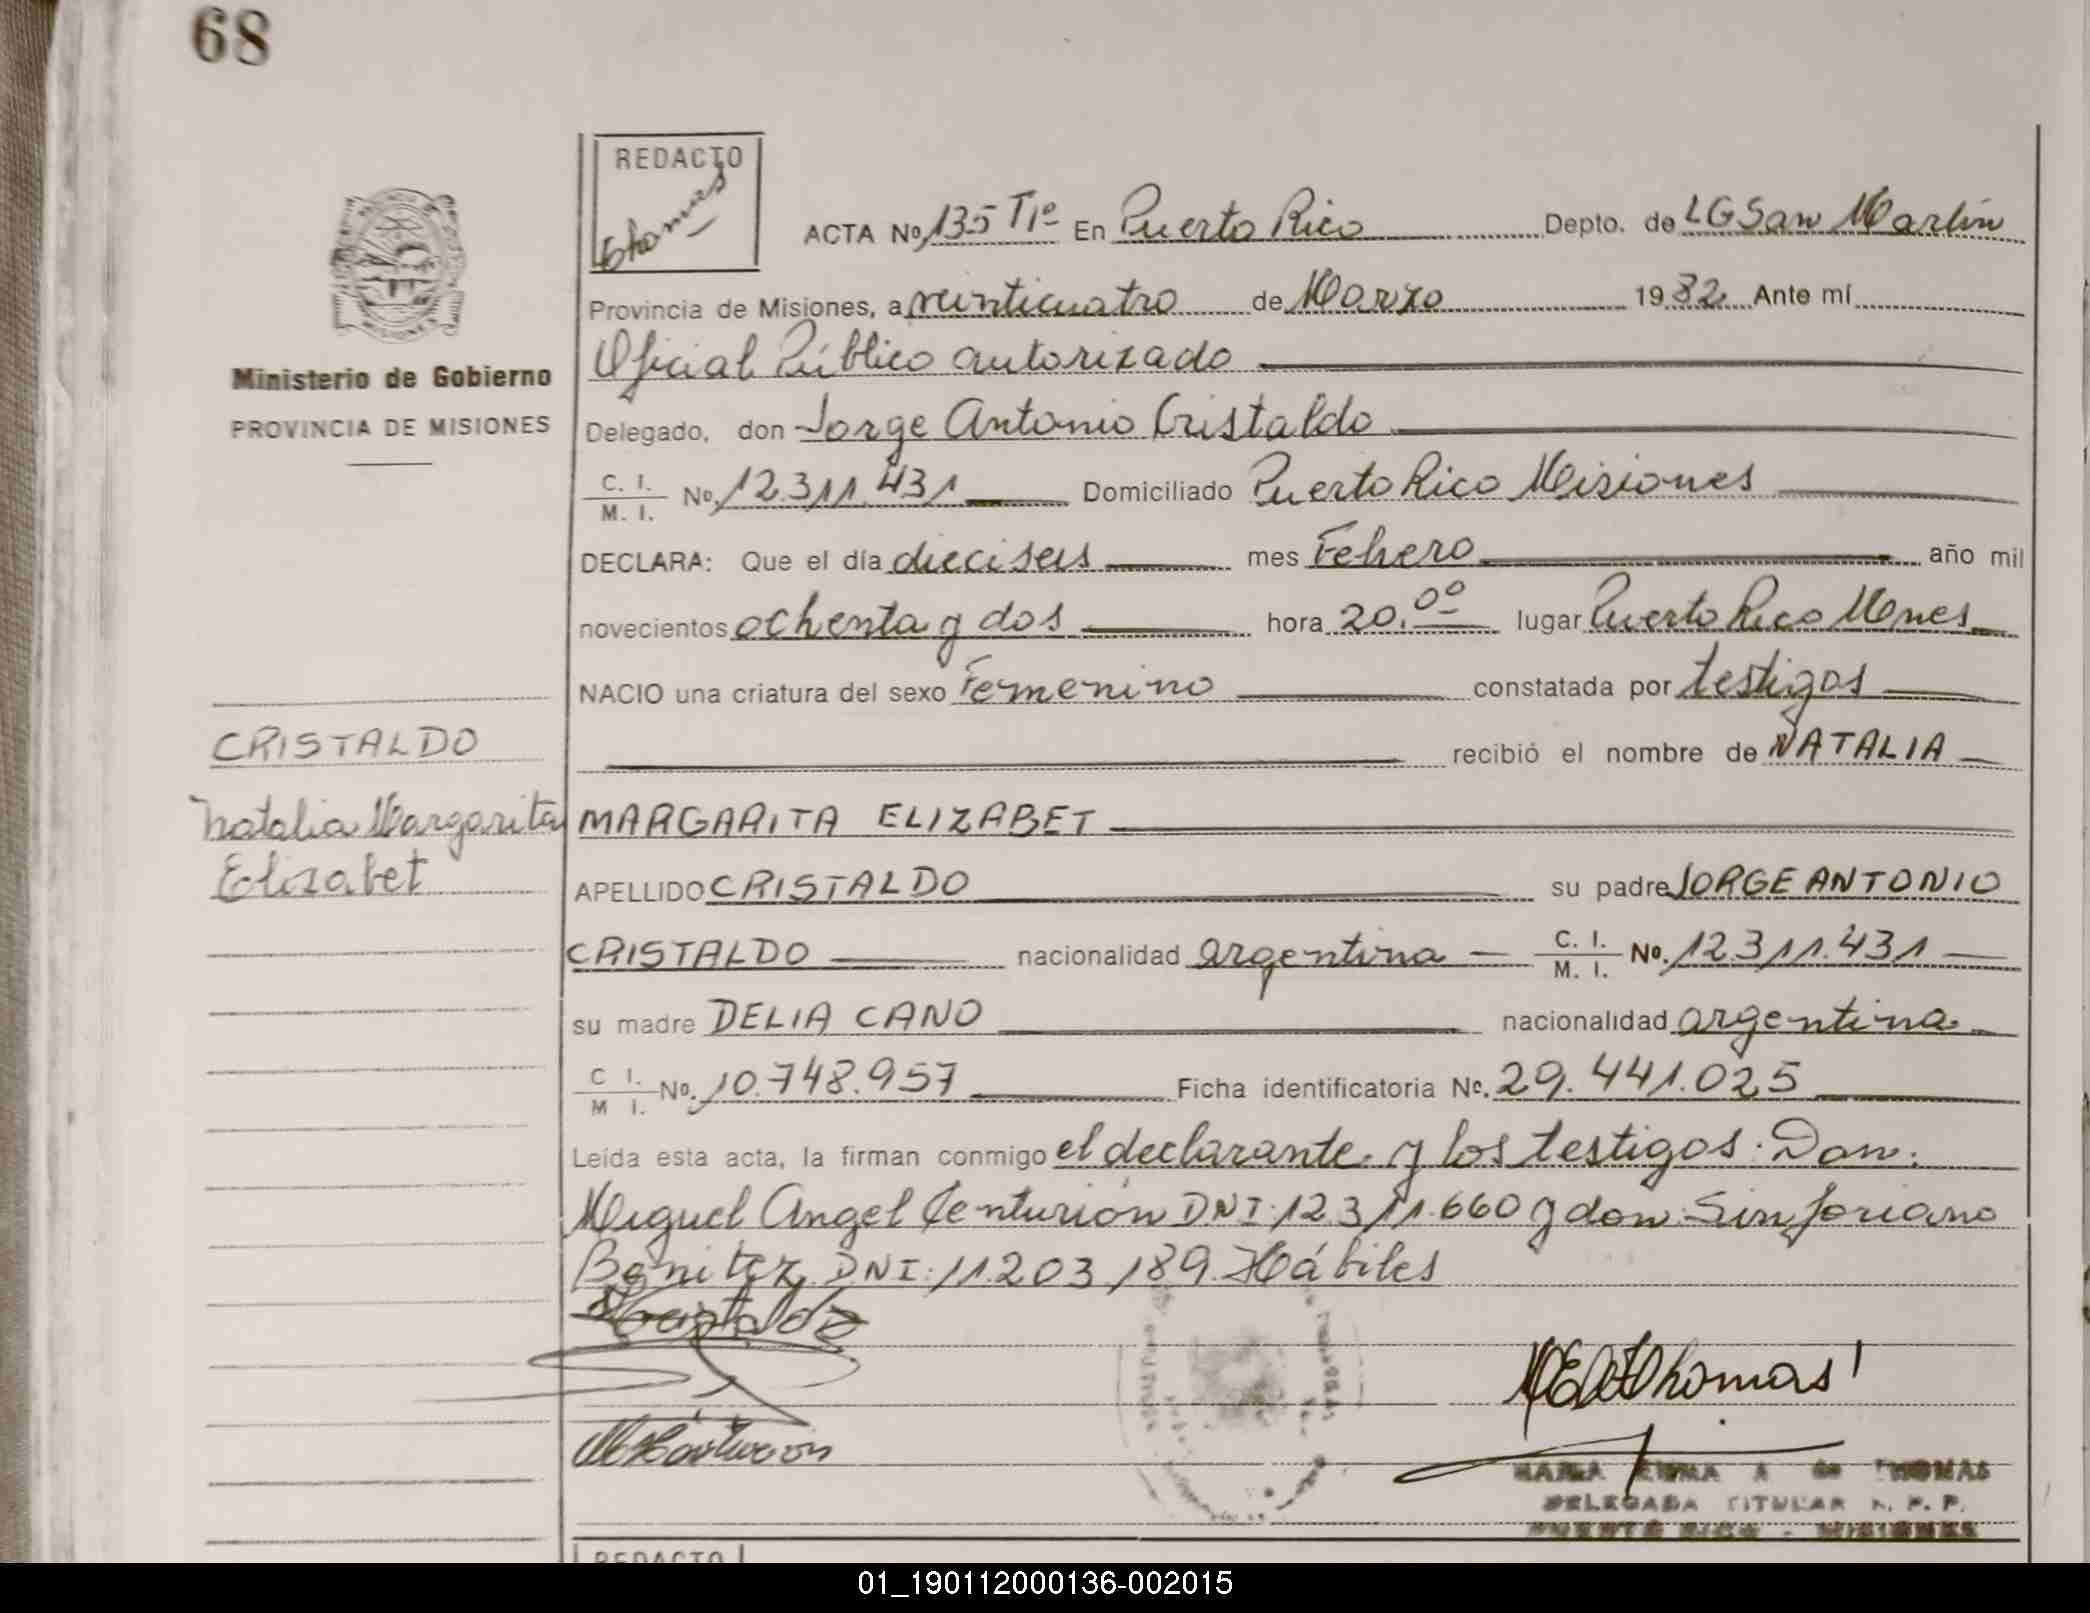 68
REDACTO
Thomas
ACTA No 135 T1º En Puerto Rico Depto. de LG San Martín
Provincia de Misiones, a veinticuatro de Marzo 1982 Ante mí
Ministerio de Gobierno
PROVINCIA DE MISIONES
Oficial Público autorizado
Delegado, don Jorge Antonio Cristaldo
C. I. / M. I. No. 12.311.431 Domiciliado Puerto Rico Misiones
DECLARA: Que el día dieciseis mes Febrero año mil
novecientos ochenta y dos hora 20.00 lugar Puerto Rico Mnes
NACIO una criatura del sexo Femenino constatada por testigos
recibió el nombre de NATALIA
CRISTALDO
Natalia Margarita
Elizabet
MARGARITA ELIZABET
APELLIDO CRISTALDO su padre JORGE ANTONIO
CRISTALDO nacionalidad argentina C. I. / M. I. No. 12.311.431
su madre DELIA CANO nacionalidad argentina
C I. / M I. No. 10.748.957 Ficha identificatoria No. 29.441.025
Leída esta acta, la firman conmigo el declarante y los testigos: Don:
Miguel Angel Centurión DNI: 12.311.660 y don: Sinforiano
Benitez DNI: 11.203.189. Hábiles
DELEGADA TITULAR R. P. P.
PUERTO RICO - MISIONES
REDACTO
01_190112000136-002015